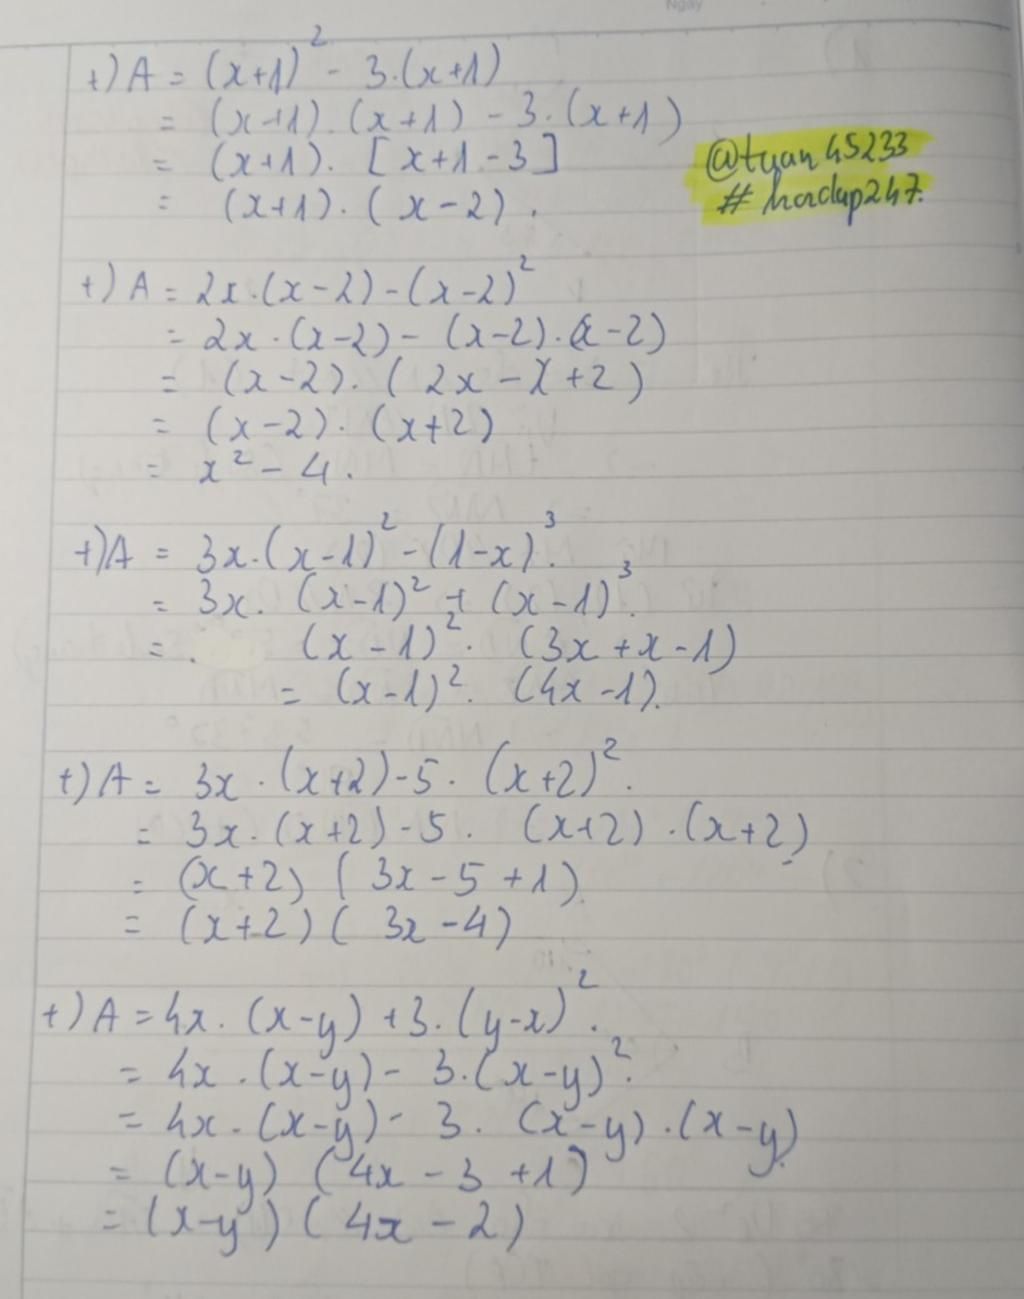 Ngày
+) A = (x+1)² - 3.(x+1)
= (x+1).(x+1) - 3.(x+1)
= (x+1).[x+1-3]
= (x+1).(x-2).
@tuan45233
#hoidap247.
+) A = 2x.(x-2)-(x-2)²
= 2x.(x-2) - (x-2).(x-2)
= (x-2).(2x-x+2)
= (x-2).(x+2)
= x² - 4.
+) A = 3x.(x-1)² - (1-x)³.
= 3x.(x-1)² + (x-1)³.
= (x-1)².(3x+x-1)
= (x-1)².(4x-1).
+) A = 3x.(x+2)-5.(x+2)².
= 3x.(x+2)-5.(x+2).(x+2)
= (x+2)(3x-5+1)
= (x+2)(3x-4)
+) A = 4x.(x-y)+3.(y-x)².
= 4x.(x-y)- 3.(x-y)².
= 4x.(x-y)- 3.(x-y).(x-y)
= (x-y)(4x-3+1)
= (x-y)(4x-2)